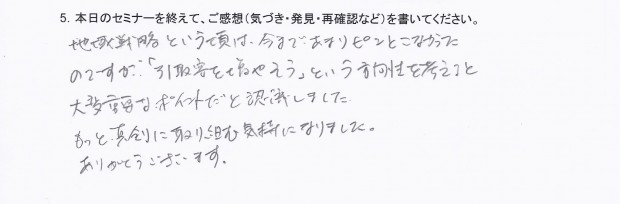 5. 本日のセミナーを終えて、ご感想（気づき・発見・再確認など）を書いてください。
地域戦略という項は、今まであまりピンとこなかった
のですが、「引取客を増やそう」という方向性を考えると
大変重要なポイントだと認識しました
もっと真剣に取り組む気持になりました。
ありがとうございます。